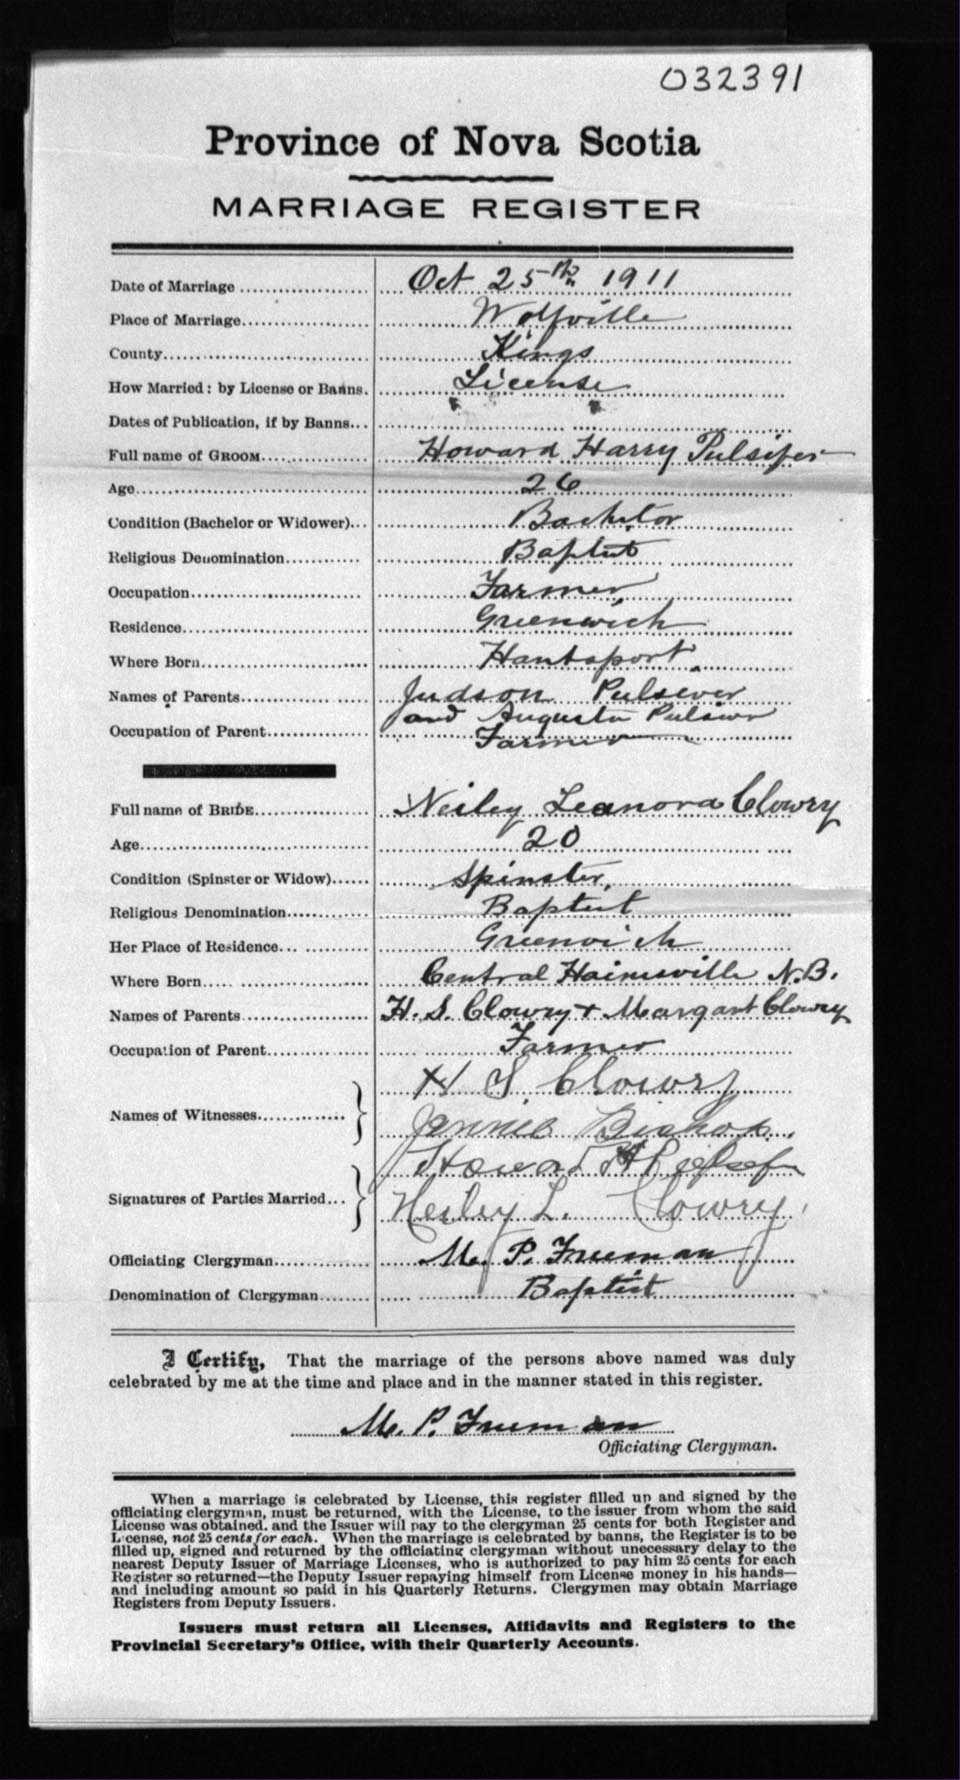 032391
Province of Nova Scotia
MARRIAGE REGISTER
Date of Marriage Oct 25th 1911
Place of Marriage Wolfville
County Kings
How Married: by License or Banns. License
Dates of Publication, if by Banns
Full name of GROOM Howard Harry Pulsifer
Age 26
Condition (Bachelor or Widower) Bachelor
Religious Denomination Baptist
Occupation Farmer
Residence Greenwich
Where Born Hantsport
Names of Parents Judson Pulsever
and Augusta Pulsiver
Occupation of Parent Farmer
Full name of BRIDE Neiley Leanora Clowry
Age 20
Condition (Spinster or Widow) Spinster
Religious Denomination Baptist
Her Place of Residence Greenwich
Where Born Central Hainesville N.B.
Names of Parents H. S. Clowry + Margart Clowry
Occupation of Parent Farmer
Names of Witnesses H S. Clowry
Jennie Bishop
Signatures of Parties Married Howard H Pulsifer
Neiley L. Clowry
Officiating Clergyman M. P. Freeman
Denomination of Clergyman Baptist
I Certify, That the marriage of the persons above named was duly
celebrated by me at the time and place and in the manner stated in this register.
M. P. Freeman
Officiating Clergyman.
When a marriage is celebrated by License, this register filled up and signed by the
officiating clergyman, must be returned, with the License, to the issuer from whom the said
License was obtained, and the Issuer will pay to the clergyman 25 cents for both Register and
License, not 25 cents for each. When the marriage is celebrated by banns, the Register is to be
filled up, signed and returned by the officiating clergyman without unnecessary delay to the
nearest Deputy Issuer of Marriage Licenses, who is authorized to pay him 25 cents for each
Register so returned—the Deputy Issuer repaying himself from License money in his hands—
and including amount so paid in his Quarterly Returns. Clergymen may obtain Marriage
Registers from Deputy Issuers.
Issuers must return all Licenses, Affidavits and Registers to the
Provincial Secretary's Office, with their Quarterly Accounts.